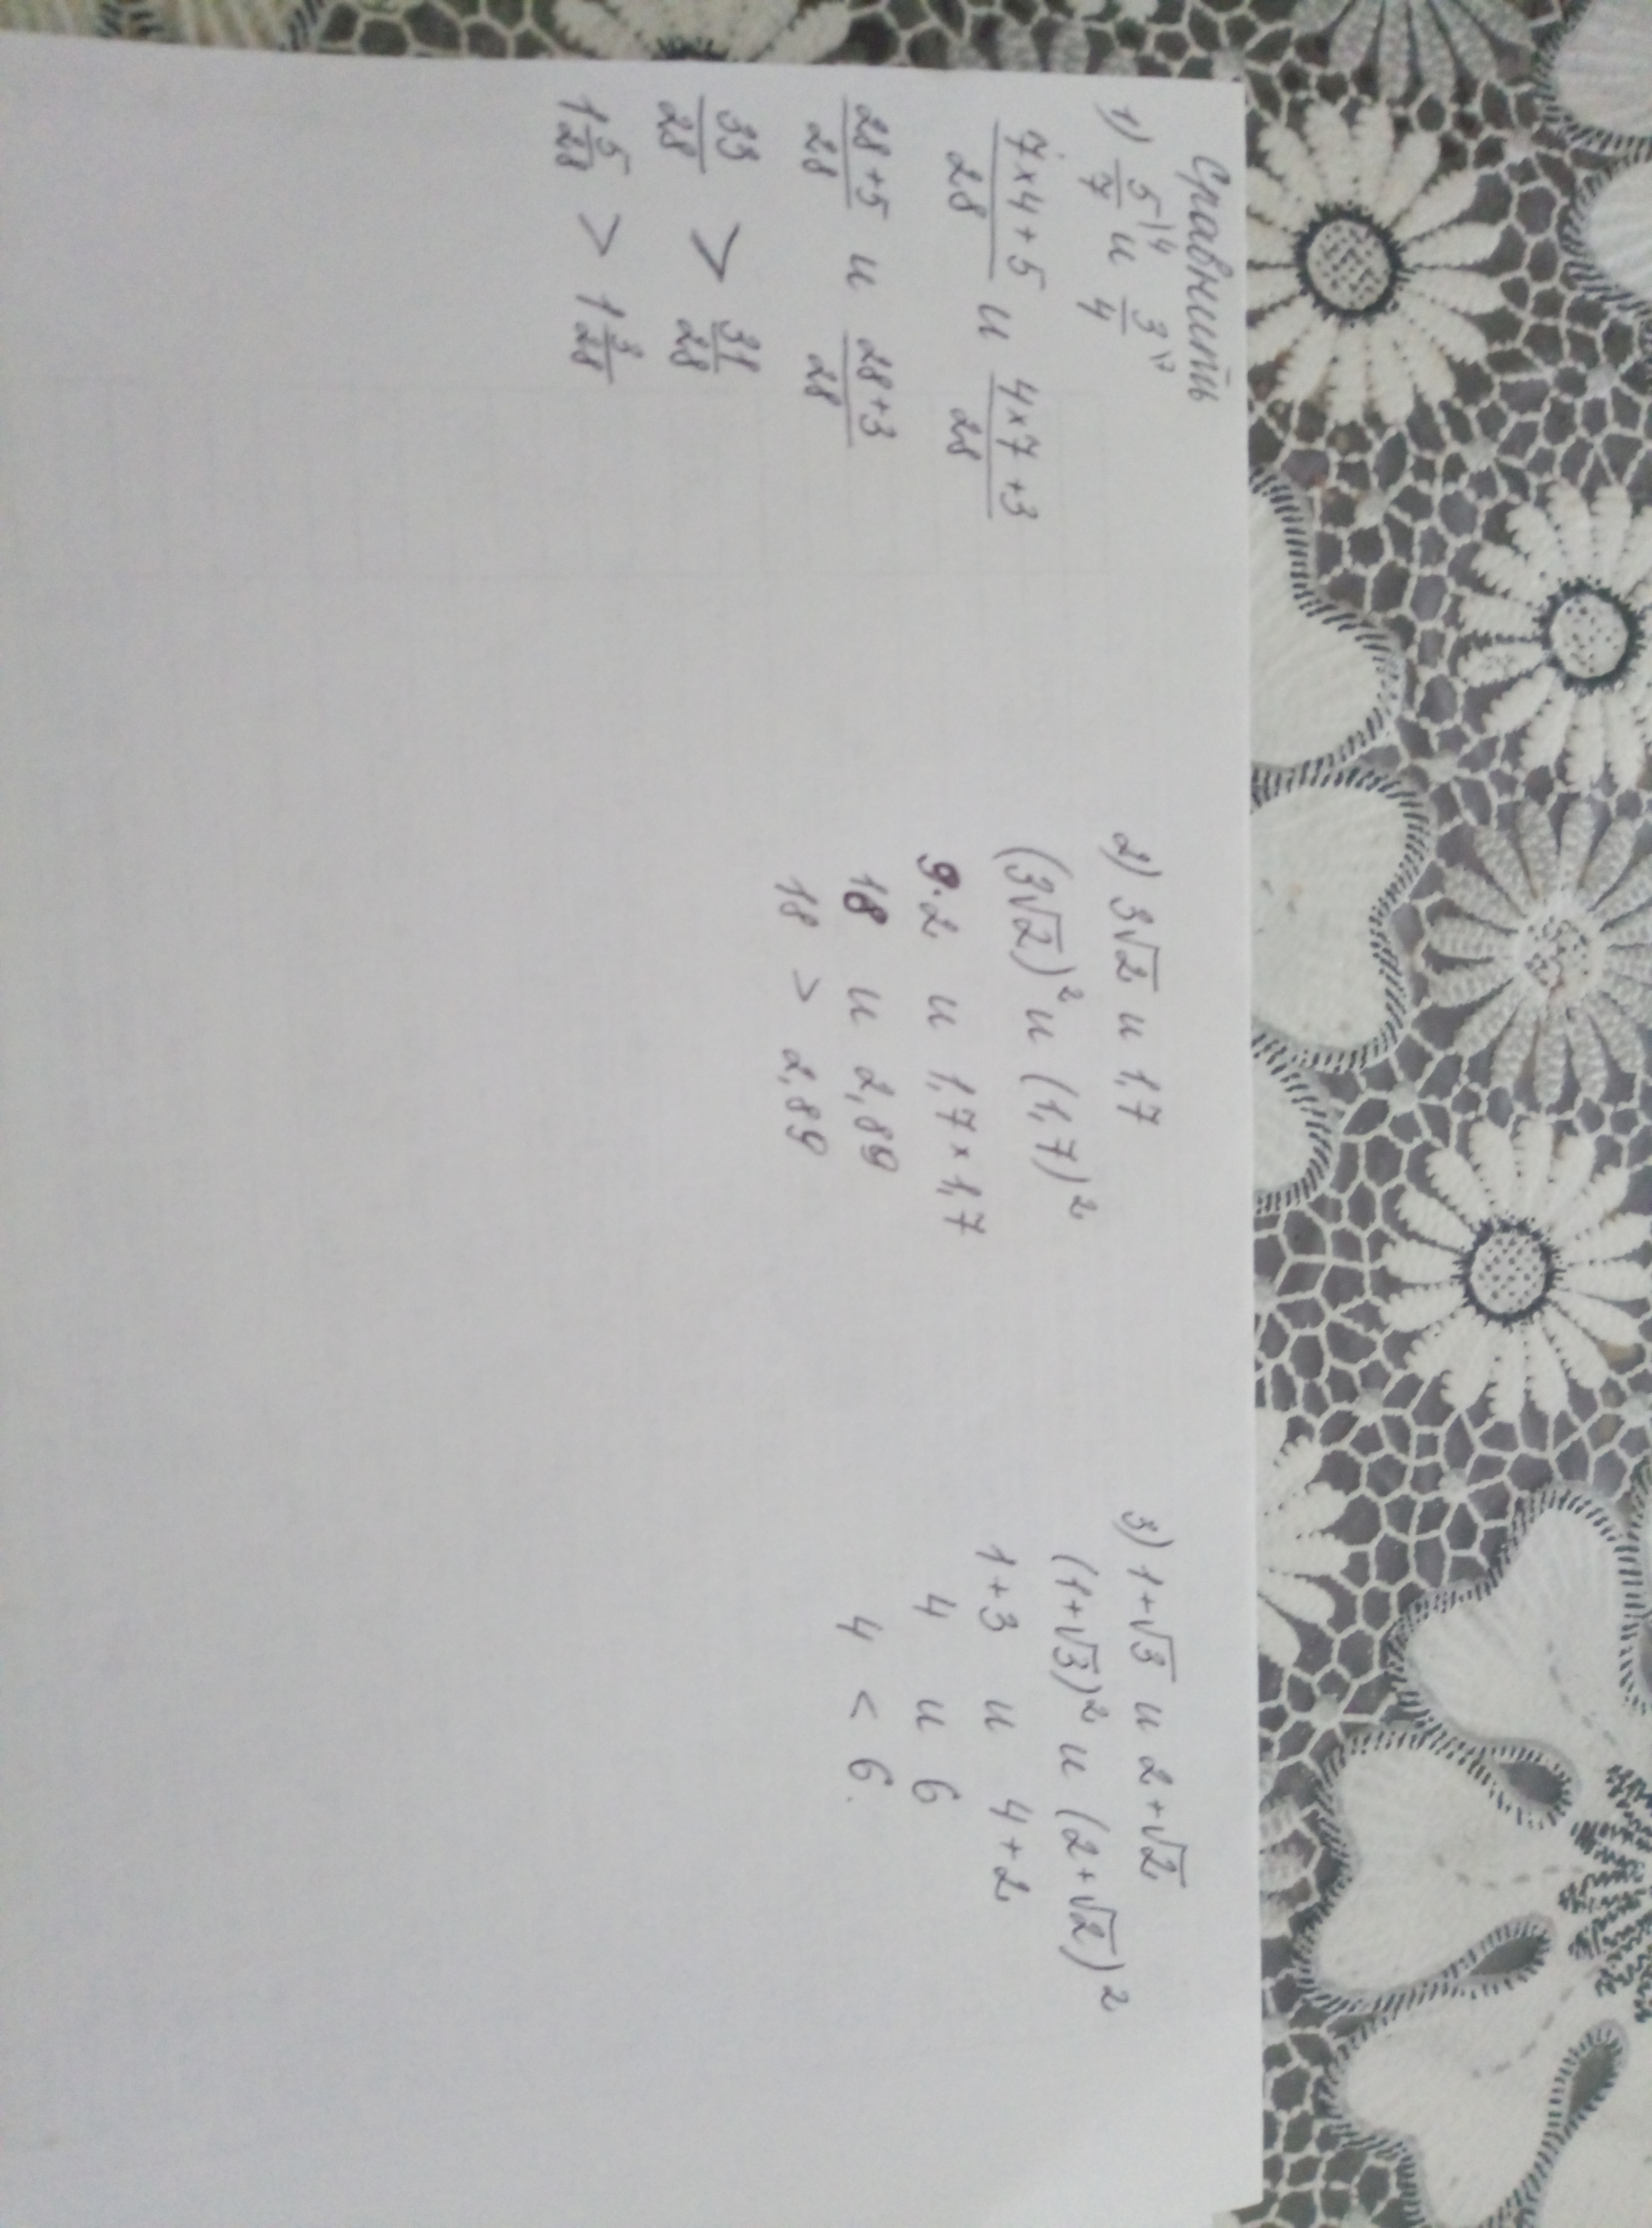 Сравнить
1) 5/7 )4 и 3/4 )7
(7×4+5)/28 и (4×7+3)/28
(28+5)/28 и (28+3)/28
33/28 > 31/28
1 5/28 > 1 3/28
2) 3√2 и 1,7
(3√2)² и (1,7)²
9·2 и 1,7×1,7
18 и 2,89
18 > 2,89
3) 1+√3 и 2+√2
(1+√3)² и (2+√2)²
1+3 и 4+2
4 и 6
4 < 6.